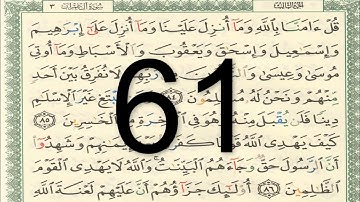 الجزء الثالث سورة آل عمران ٣
قُلْ ءَامَنَّا بِٱللَّهِ وَمَآ أُنزِلَ عَلَيْنَا وَمَآ أُنزِلَ عَلَىٰٓ إِبْرَٰهِيمَ
وَإِسْمَٰعِيلَ وَإِسْحَٰقَ وَيَعْقُوبَ وَٱلْأَسْبَاطِ وَمَآ أُوتِىَ
مُوسَىٰ وَعِيسَىٰ رَّبِّهِمْ لَا نُفَرِّقُ بَيْنَ أَحَدٍ
مِّنْهُمْ وَنَحْنُ لَهُۥ مُسْلِمُونَ ٨٤ يَبْتَغِ غَيْرَ ٱلْإِسْلَٰمِ
دِينًا فَلَن يُقْبَلَ مِنْهُ وَهُوَ فِى ٱلْءَاخِرَةِ مِنَ ٱلْخَٰسِرِينَ ٨٥
كَيْفَ يَهْدِى ٱللَّهُ إِيمَٰنِهِمْ وَشَهِدُوٓا۟
أَنَّ ٱلرَّسُولَ حَقٌّ وَجَآءَهُمُ ٱلْبَيِّنَٰتُ وَٱللَّهُ لَا يَهْدِى ٱلْقَوْمَ
ٱلظَّٰلِمِينَ ٨٦ أُو۟لَٰٓئِكَ جَزَآؤُهُمْ أَنَّ عَلَيْهِمْ لَعْنَةَ ٱللَّهِ
61